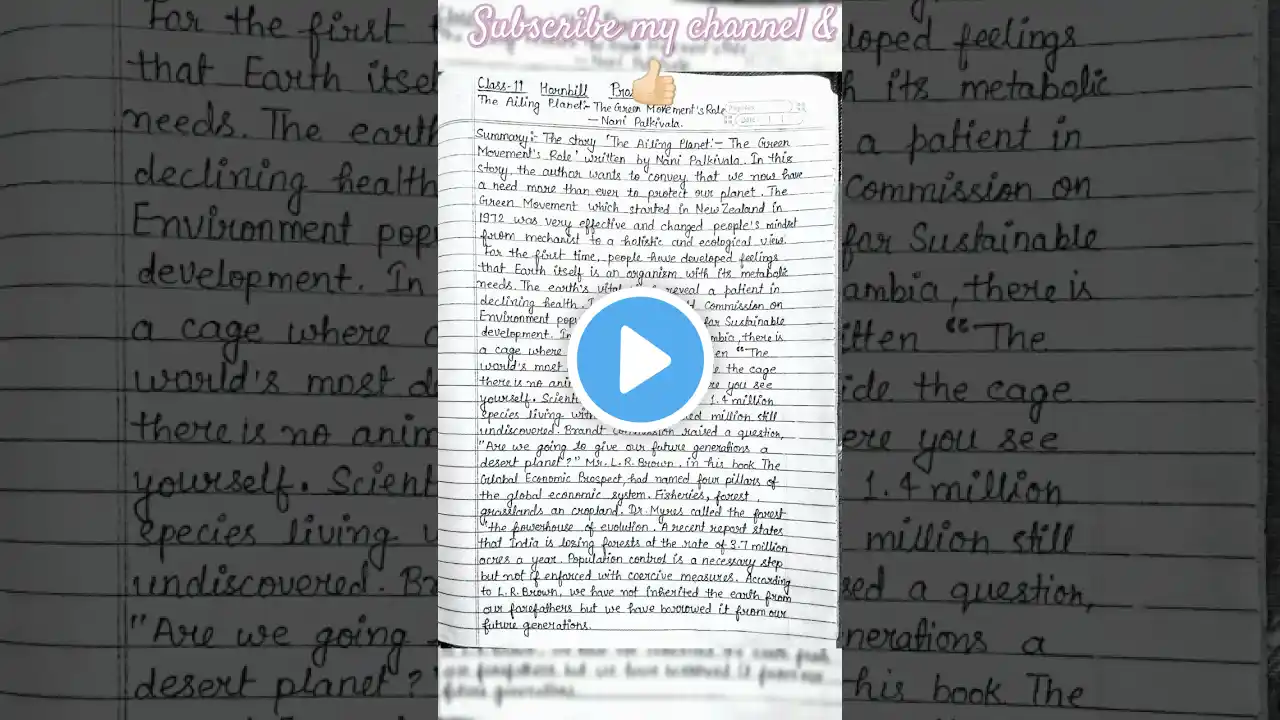 Subscribe my channel &
Class-11 Hornbill Pro
The Ailing Planet:- The Green Movement's Role
— Nani Palkivala.
Summary:- The story 'The Ailing Planet:- The Green
Movement's Role' written by Nani Palkivala. In this
story, the author wants to convey that we now have
a need more than ever to protect our planet. The
Green Movement which started in New Zealand in
1972 was very effective and changed people's mindset
from mechanist to a holistic and ecological view.
For the first time, people have developed feelings
that Earth itself is an organism with its metabolic
needs. The earth's vital reveal a patient in
declining health. Commission on
Environment pop for Sustainable
development. In mbia, there is
a cage where en "The
world's most the cage
there is no anim re you see
yourself. Scienti 1.4 million
species living with ed million still
undiscovered. Brandt Commission raised a question,
"Are we going to give our future generations a
desert planet?" Mr. L.R. Brown, in his book The
Global Economic Prospect, had named four pillars of
the global economic system. Fisheries, forest,
grasslands an cropland. Dr. Myres called the forest
"the powerhouse of evolution. A recent report states
that India is losing forests at the rate of 3.7 million
acres a year. Population control is a necessary step
but not if enforced with coercive measures. According
to L.R. Brown, we have not inherited the earth from
our forefathers but we have borrowed it from our
future generations.